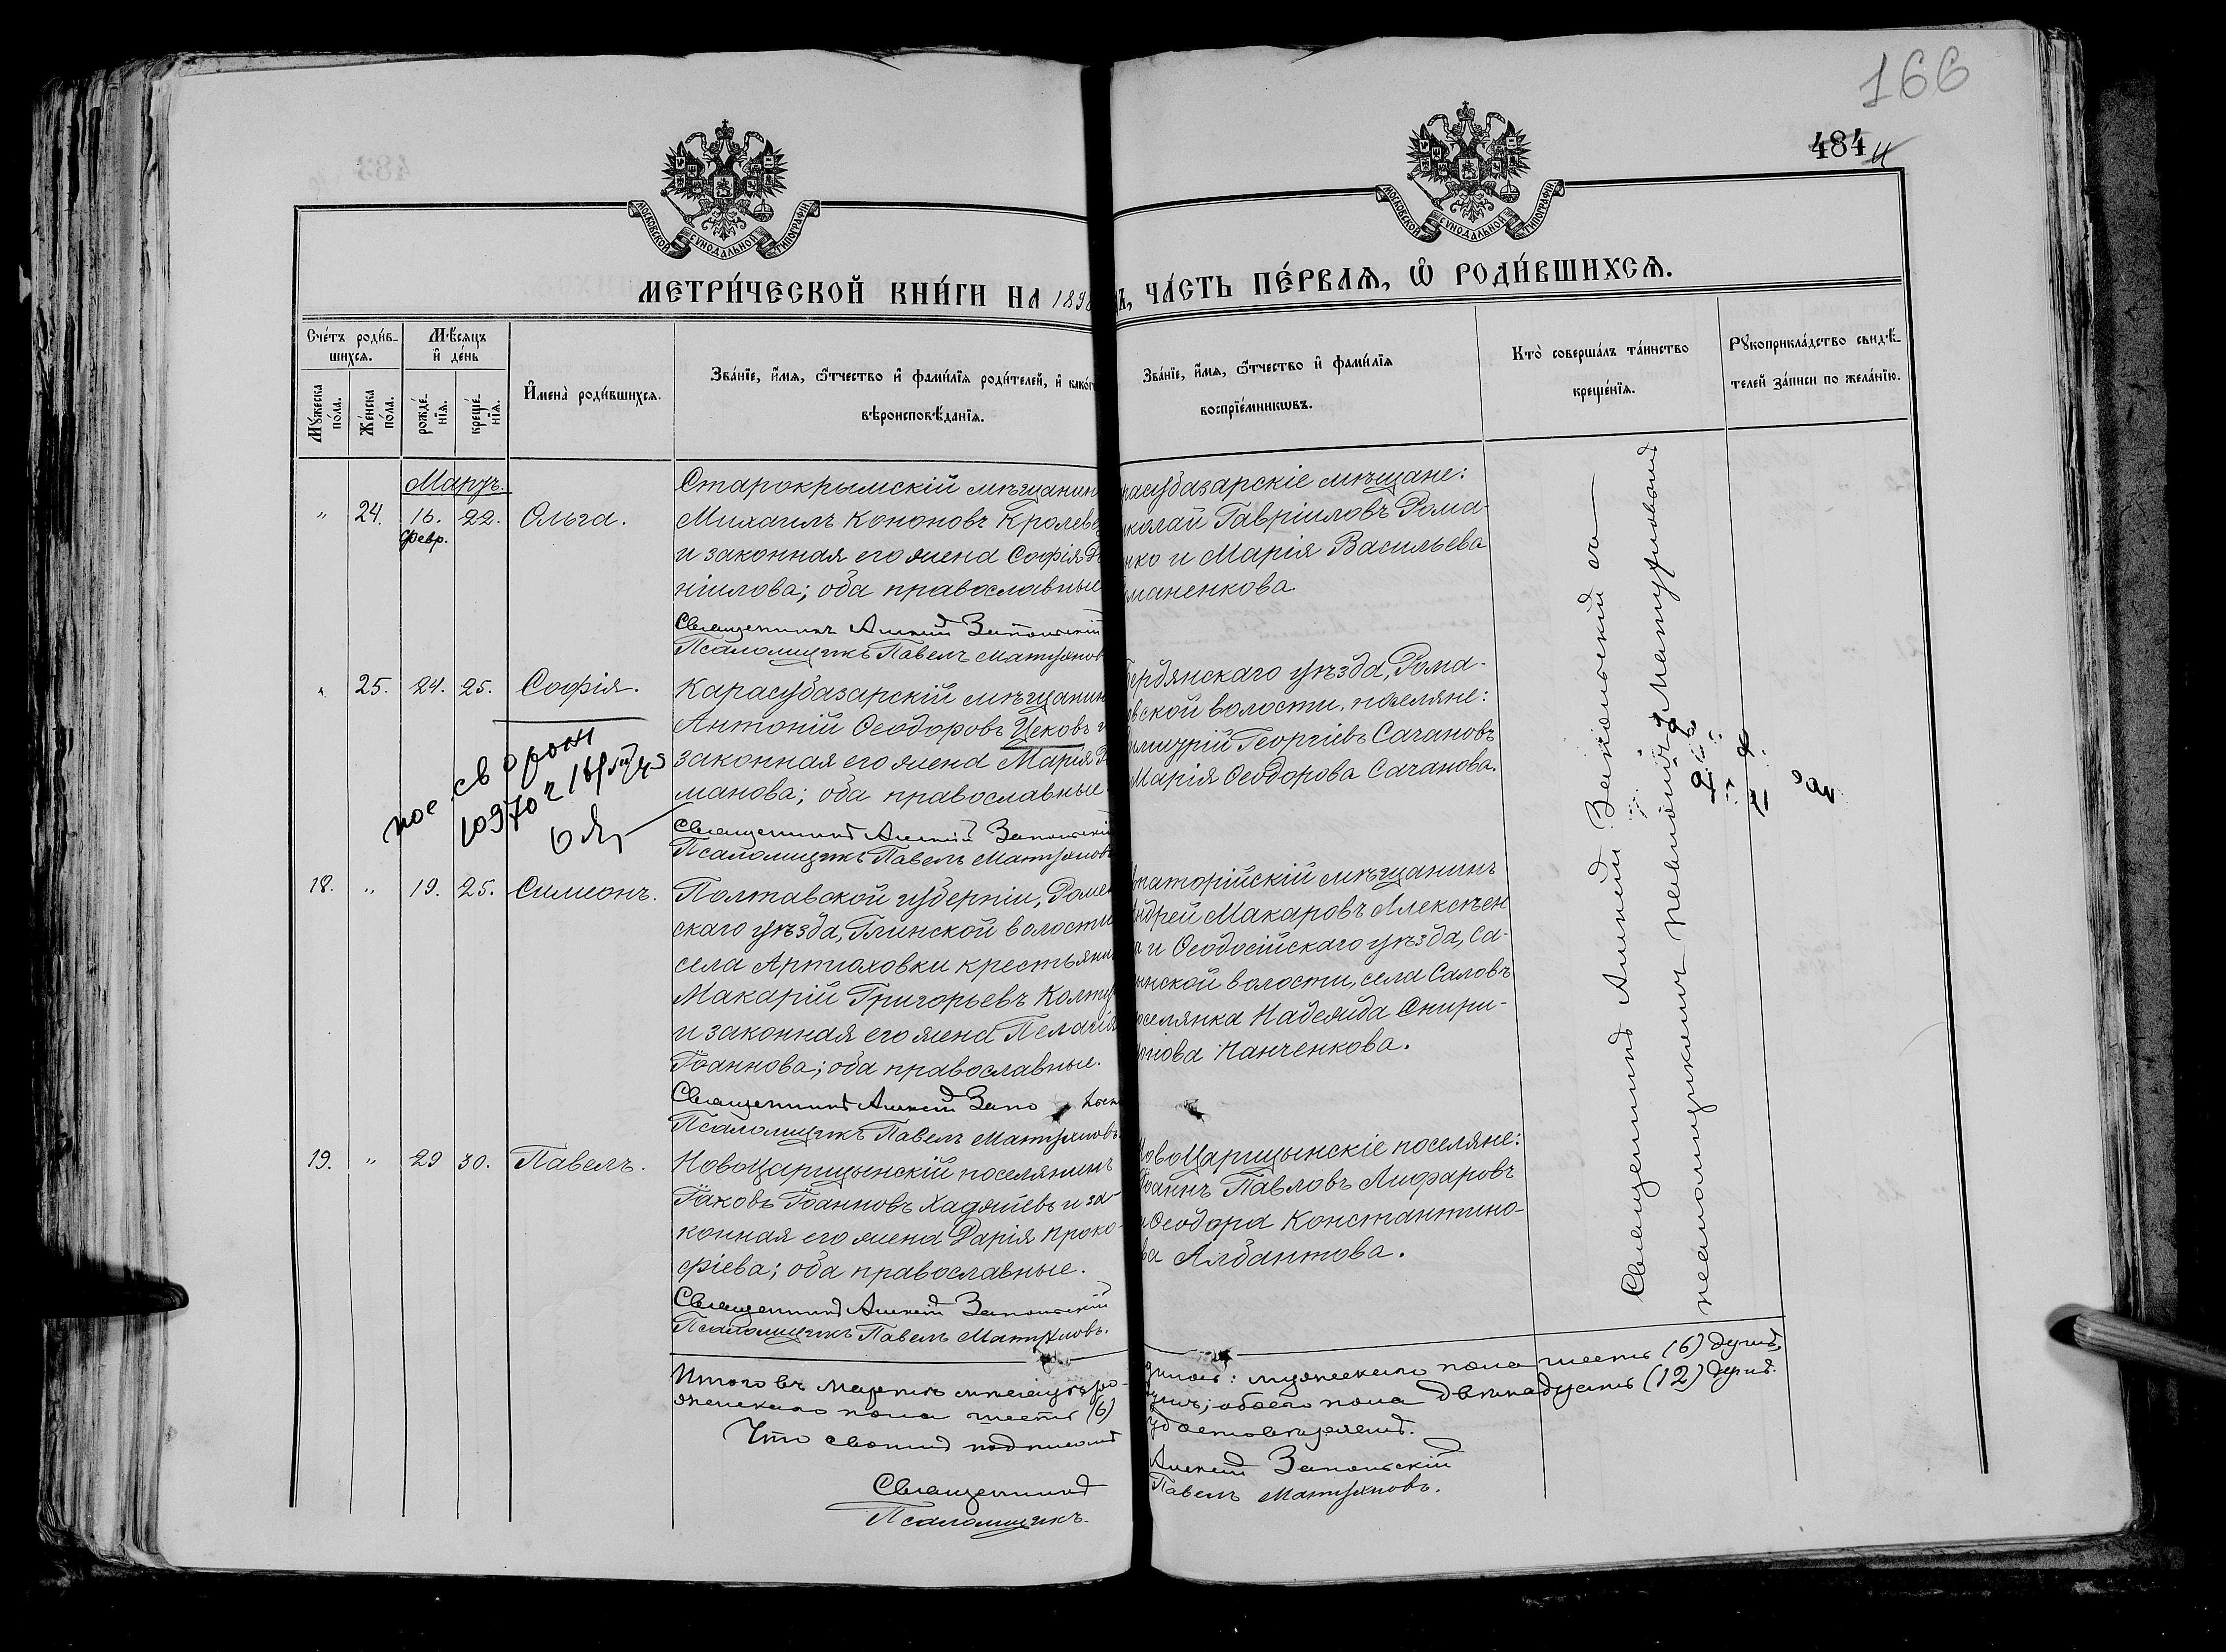 166
484
МОСКОВСКОЙ СѴНОДАЛЬНОЙ ТИПОГРАФІИ
МОСКОВСКОЙ СѴНОДАЛЬНОЙ ТИПОГРАФІИ
МЕТРИ́ЧЕСКОЙ КНИ́ГИ НА 189
, ЧА́СТЬ ПЕ́РВАѦ, Ѡ҆ РОДИ́ВШИХСѦ.
Сче́тъ роди́в-
шихсѧ.
Мꙋ́жеска по́ла.
Же́нска по́ла.
Мѣ́сѧцъ и҆ де́нь
рожде́-нїѧ.
креще́-нїѧ.
И҆мена̀ роди́вшихсѧ.
Зва́нїе, и҆́мѧ, ѻ҆́тчество и҆ фами́лїѧ роди́телей, и҆ како́г
вѣроисповѣ́данїѧ.
Зва́нїе, и҆́мѧ, ѻ҆́тчество и҆ фами́лїѧ
воспрїе́мникѡвъ.
Кто̀ соверша́лъ та́инство
креще́нїѧ.
Рꙋкоприкла́дство свидѣ́-
телей за́писи по жела́нїю.
Мартъ.
" 24. 16. 22. Ольга.
Февр.
Старокрымскій мѣщанин
Михаилъ Кононовъ Кролеве
и законная его жена Софія Да
ніилова; оба православные
Священникъ Алексій Запольскій
Псаломщикъ Павелъ Матухнов
расубазарскіе мѣщане:
иколай Гавріиловъ Рома-
нко и Марія Васильева
маненкова.
" 25. 24. 25. Софія.
Карасубазарскій мѣщанин
Антоній Ѳеодоровъ Цековъ и
законная его жена Марія Ро
манова; оба православные.
Священникъ Алексій Запольскій
Псаломщикъ Павелъ Матухнов
Бердянскаго уѣзда, Рома-
вской волости, поселяне:
имитрій Георгіевъ Сачановъ
Марія Ѳеодорова Сачанова.
св о рож
18. " 19. 25. Симеонъ.
Полтавской губерніи, Ромен
скаго уѣзда, Глинской волости
села Артюховки крестьяни
Макарій Григорьевъ Колту
и законная его жена Пелагія
Іоаннова; оба православные.
Священникъ Алексій Запо льск
Псаломщикъ Павелъ Матухновъ
впаторійскій мѣщанинъ
Андрей Макаровъ Алексѣен
и Ѳеодосійскаго уѣзда, Са-
инской волости, села Саловъ
оселянка Надежда Спири-
онова Панченкова.
19. " 29 30. Павелъ.
НовоЦарицынскій поселянинъ
Іаковъ Іоанновъ Хаджіевъ и за-
конная его жена Дарія Проко-
фіева; оба православные.
Священникъ Алексій Запольскій
Псаломщикъ Павелъ Матухновъ.
НовоЦарицынскіе поселяне:
Іоаннъ Павловъ Лифаровъ
и Ѳеодора Константино-
ва Албантова.
Священникъ Алексій Запольскій съ
псаломщикомъ Павломъ Матухновымъ
Итого въ мартѣ мѣсяцѣ ро-
дилось: мужескаго пола шесть (6) душъ,
женскаго пола шесть (6)
душъ; обоего пола двѣнадцать (12) душъ.
Что своимъ подписомъ
удостовѣряемъ.
Священникъ
Алексій Запольскій
Псаломщикъ.
Павелъ Матухновъ.